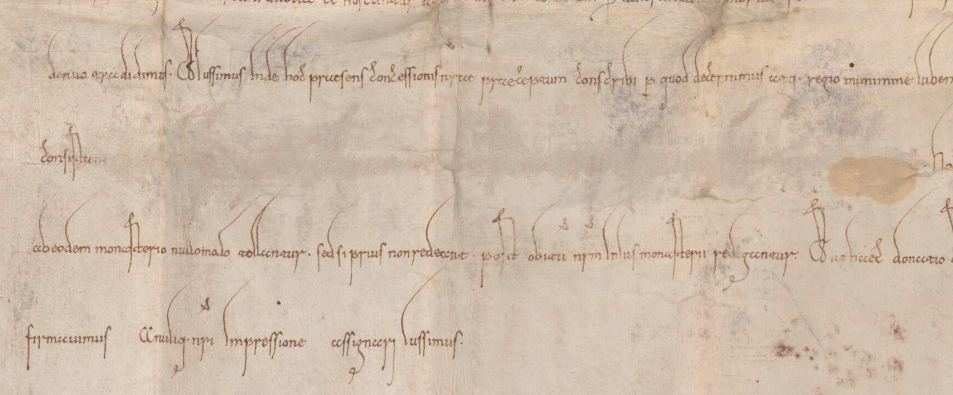 denuo tradidimus. Et iussimus inde hoc presens concessionis nrae preceptum conscribi p quod decernimus atq. regio munimine iuben
constitu
ab eodem monasterio nullo modo tollatur. sed si prius non redeat post obitu nrm in ius monasterii redigatur. Et ut haec donatio
firmavimus Anuliq. nri impressione assignari iussimus.